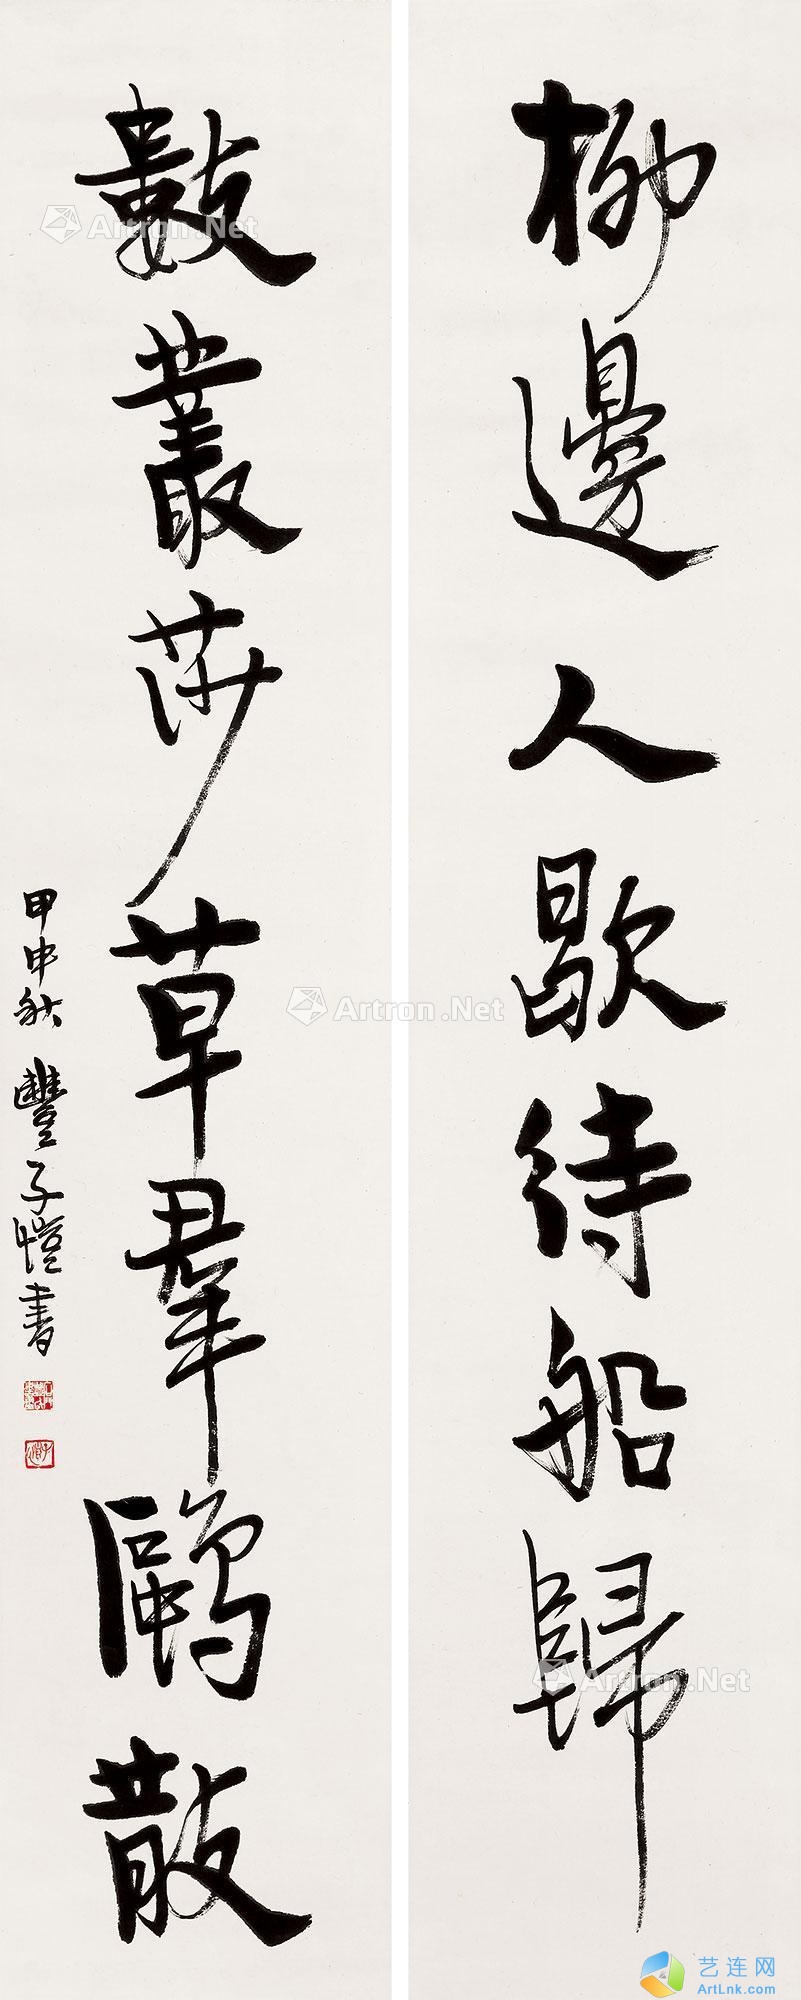 柳邊人歇待船歸
數叢莎草羣鷗散
甲申秋 豐子愷書
Artron.Net
Artron.Net
Artron.Net
艺连网
ArtLnk.com